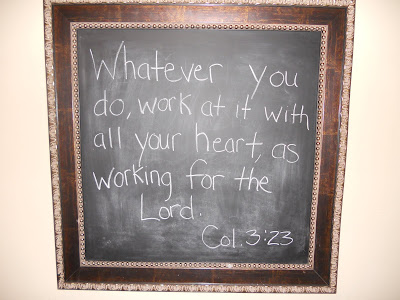 Whatever you
do, work at it with
all your heart, as
working for the
Lord.
Col. 3:23